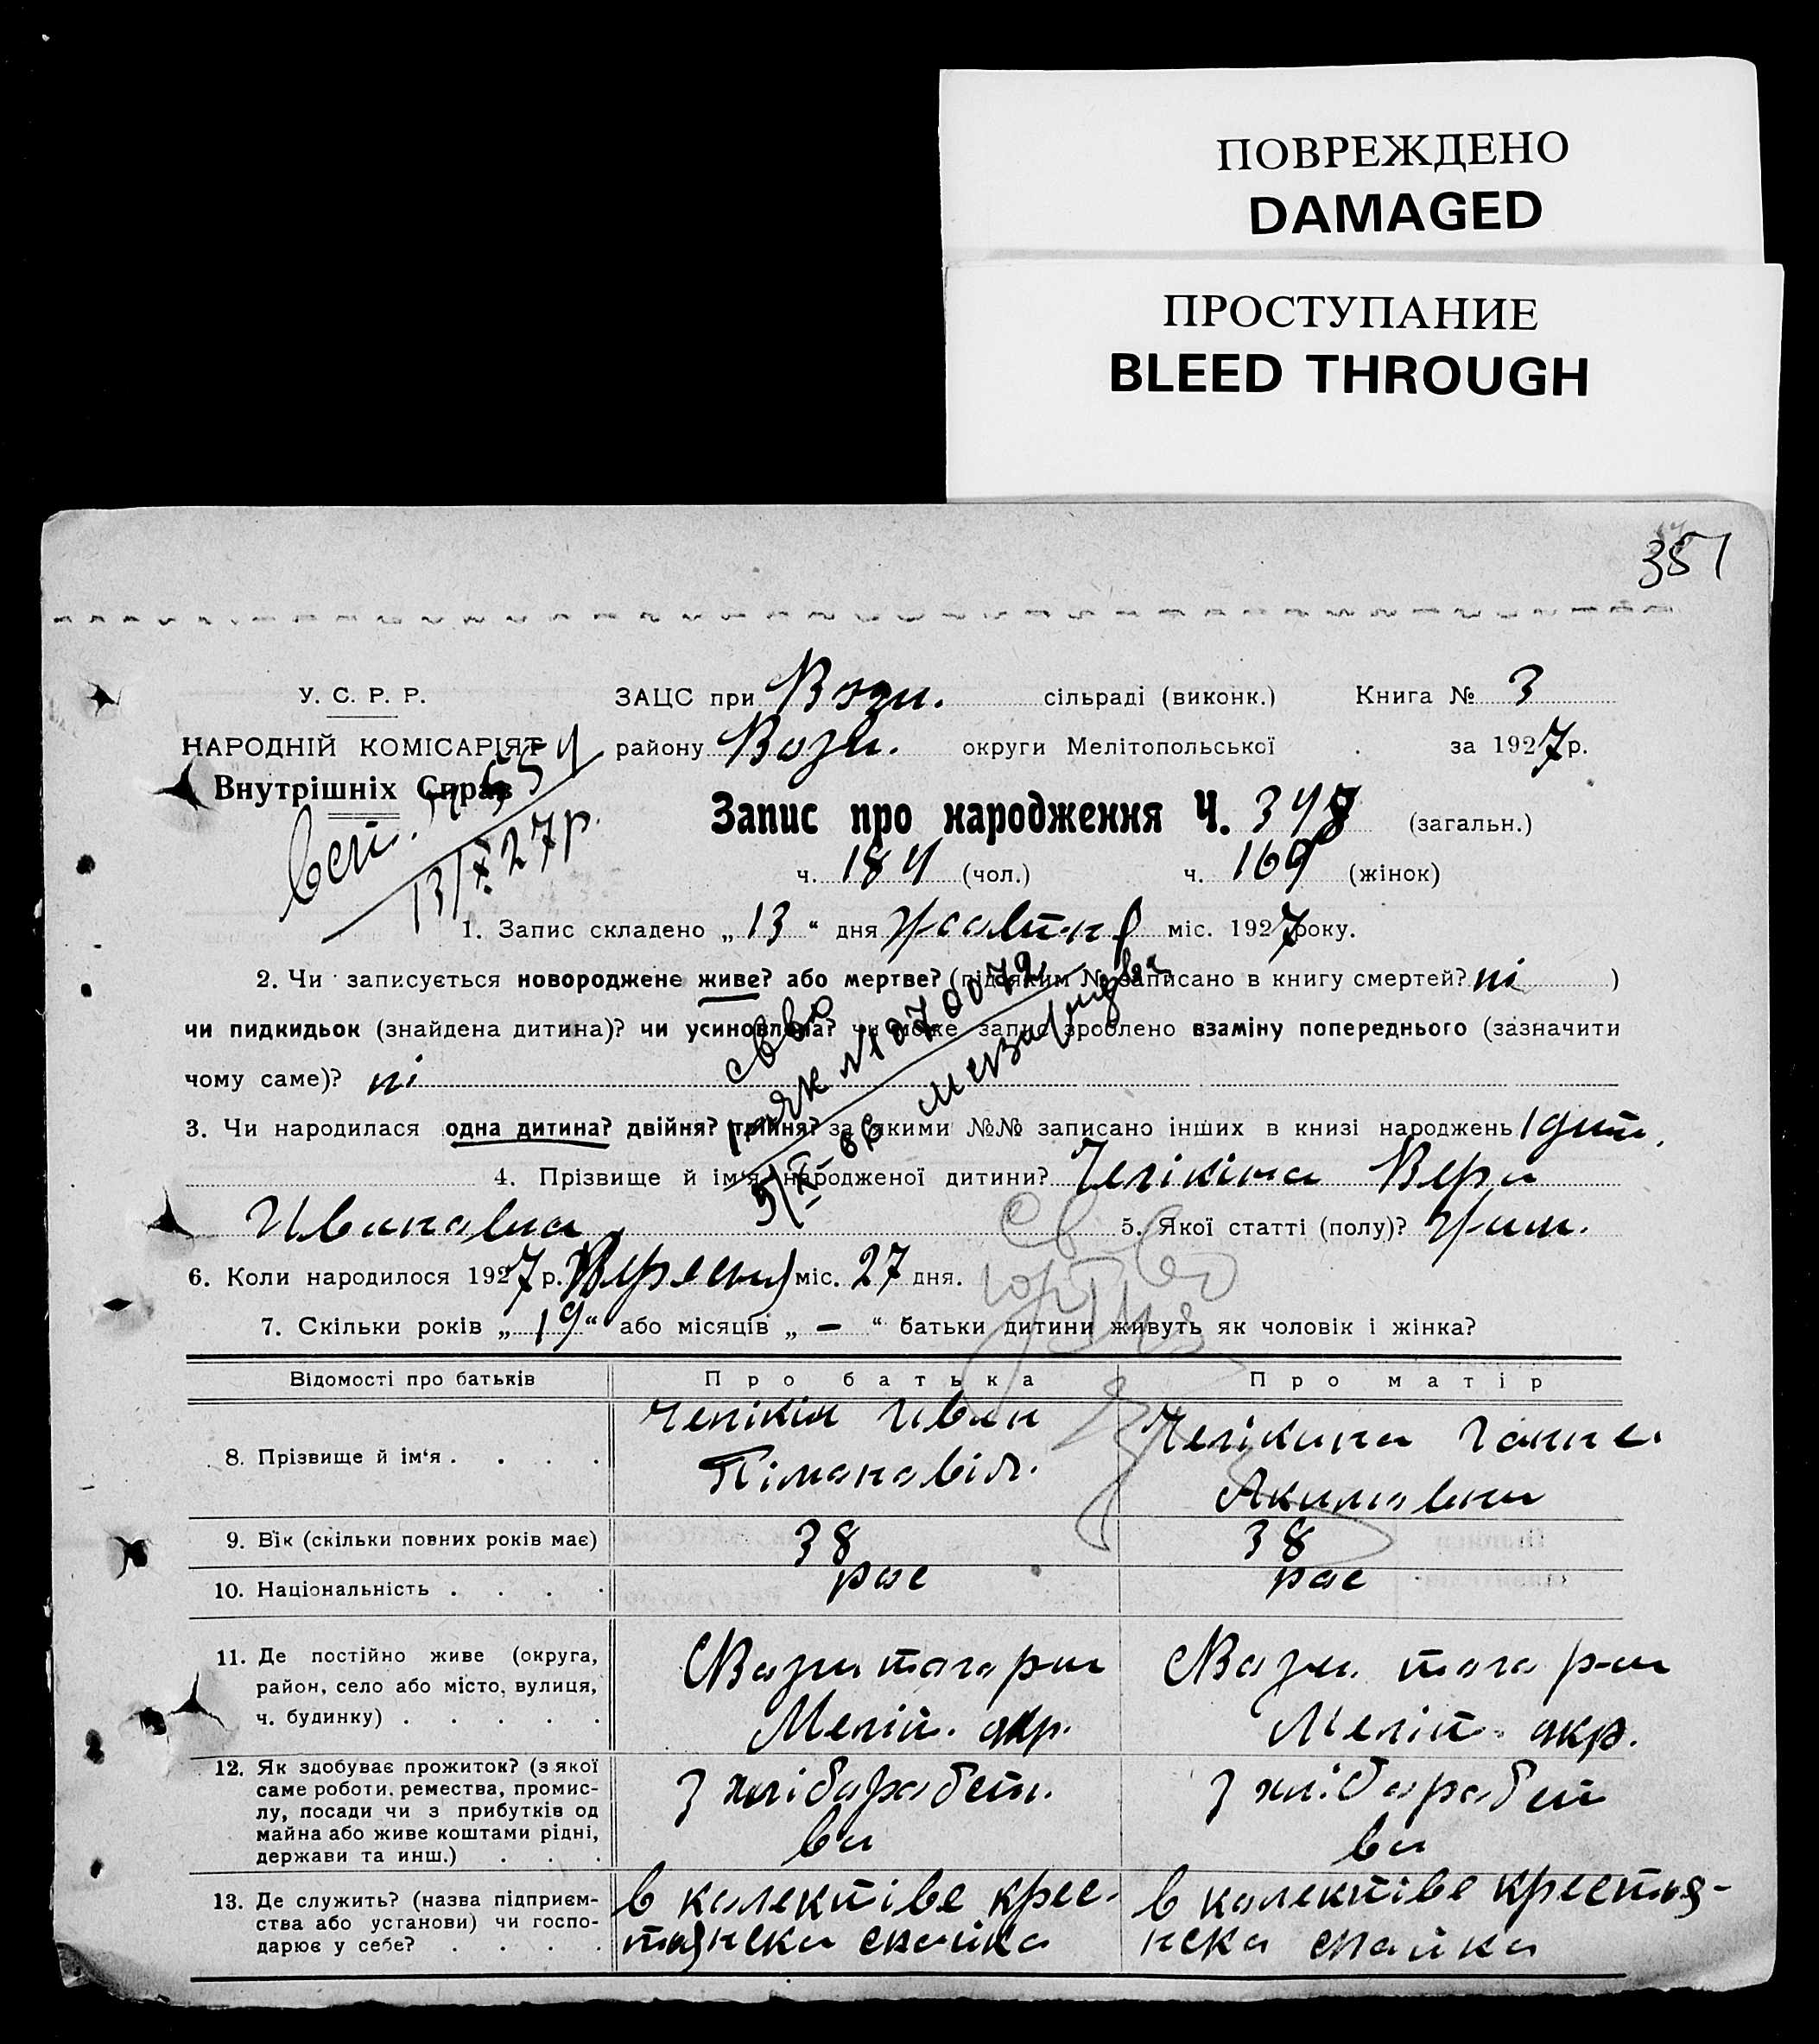 ПОВРЕЖДЕНО
DAMAGED
ПРОСТУПАНИЕ
BLEED THROUGH
351
У. С. Р. Р.
НАРОДНІЙ КОМІСАРІЯТ
Внутрішніх Справ
13/X 27 р.
ЗАЦС при Возн. сільраді (виконк.) Книга № 3
району Возн. округи Мелітопольської за 1927 р.
Запис про народження Ч. 348 (загальн.)
ч. 184 (чол.) ч. 169 (жінок)
1. Запис складено „ 13 “ дня Жовтня міс. 1927 року.
2. Чи записується новороджене живе? або мертве? (під яким № записано в книгу смертей? ні )
чи пидкидьок (знайдена дитина)? чи усиновлена? чи може запис зроблено взаміну попереднього (зазначити
чому саме)? ні
3. Чи народилася одна дитина? двійня? трійня? за якими №№ записано інших в книзі народжень 1 дит.
4. Прізвище й ім‘я народженої дитини? Челікіна Вера
Ивановна 5. Якої статті (полу)? Жин.
6. Коли народилося 1927 р. Вересня міс. 27 дня.
7. Скільки років „ 19 “ або місяців „ — “ батьки дитини живуть як чоловік і жінка?
Відомості про батьків Про батька Про матір
8. Прізвище й ім‘я . . . . Челікін Иван Челікина Ганна
Акимовна
9. Вік (скільки повних років має) 38 38
10. Національність . . . . рос рос
11. Де постійно живе (округа, район, село або місто, вулиця, ч. будинку) . . . . . С Вазн тогорн С Вазн. того р-ну
Меліт. окр. Меліт. окр.
12. Як здобуває прожиток? (з якої саме роботи, ремества, промислу, посади чи з прибутків од майна або живе коштами рідні, держави та инш.) . . . З хліборобст. З хліборобст
ва ва
13. Де служить? (назва підприємства або установи) чи господарює у себе? . . . . в колективе крес- в колективе крестья-
тянска спайка нска спайка